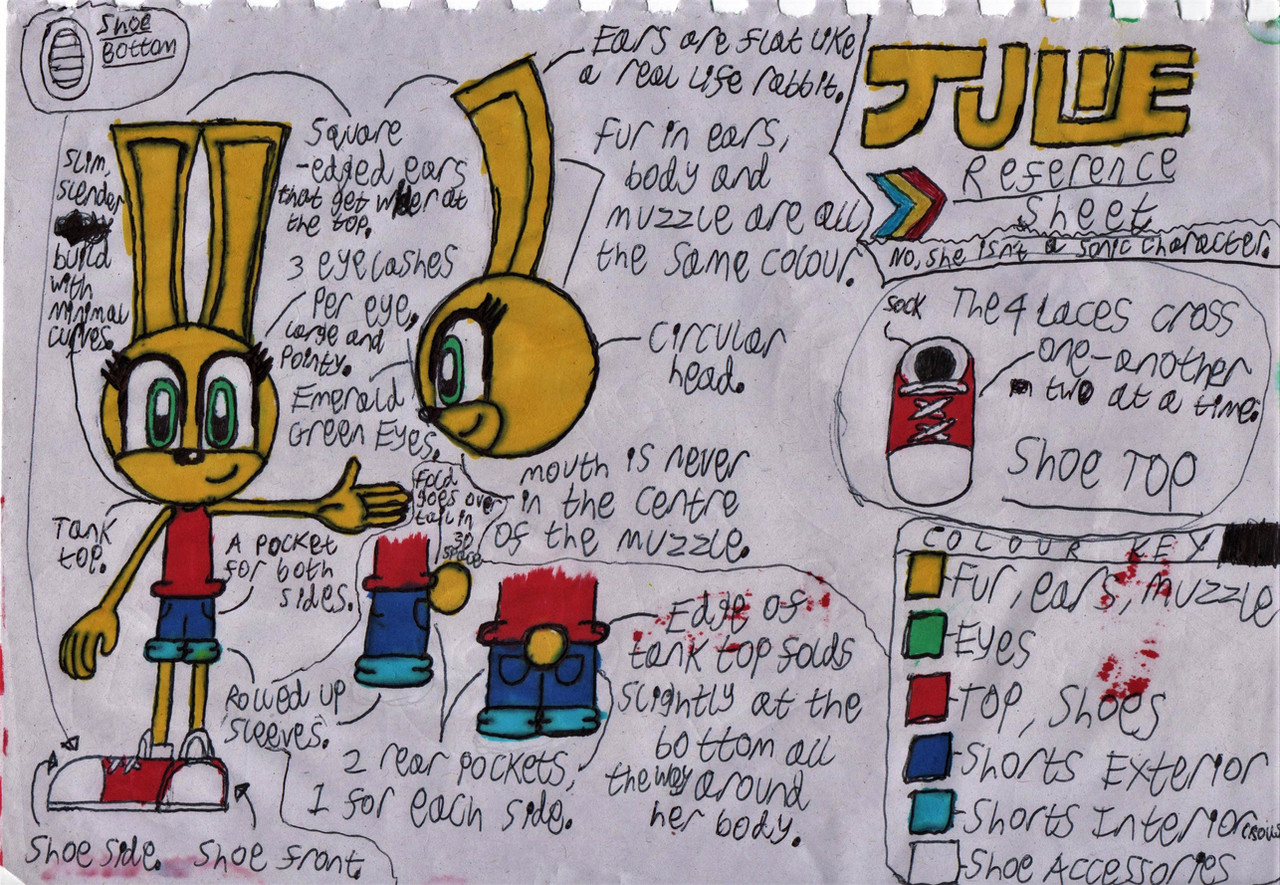 Shoe
Bottom
Ears are flat like
a real life rabbit.
JULIE
Reference
Sheet
No, she isn't a Sonic character.
Slim,
slender
build
with
minimal
curves.
Square
-edged ears
that get wider at
the top.
Fur in ears,
body and
muzzle are all
the same colour.
3 eyelashes
per eye,
large and
pointy.
Emerald
Green Eyes.
Circular
head.
Sock
The 4 laces cross
one-another
two at a time.
Shoe Top
mouth is never
in the centre
of the muzzle.
Fold
goes over
tail in
3D
space
Tank
top.
A pocket
for both
sides.
Rolled up
sleeves.
2 rear pockets,
1 for each side.
Edge of
tank top folds
slightly at the
bottom all
the way around
her body.
Shoe side. Shoe front.
COLOUR KEY
Fur, ears, muzzle
Eyes
Top, Shoes
Shorts Exterior
Shorts Interior
Shoe Accessories